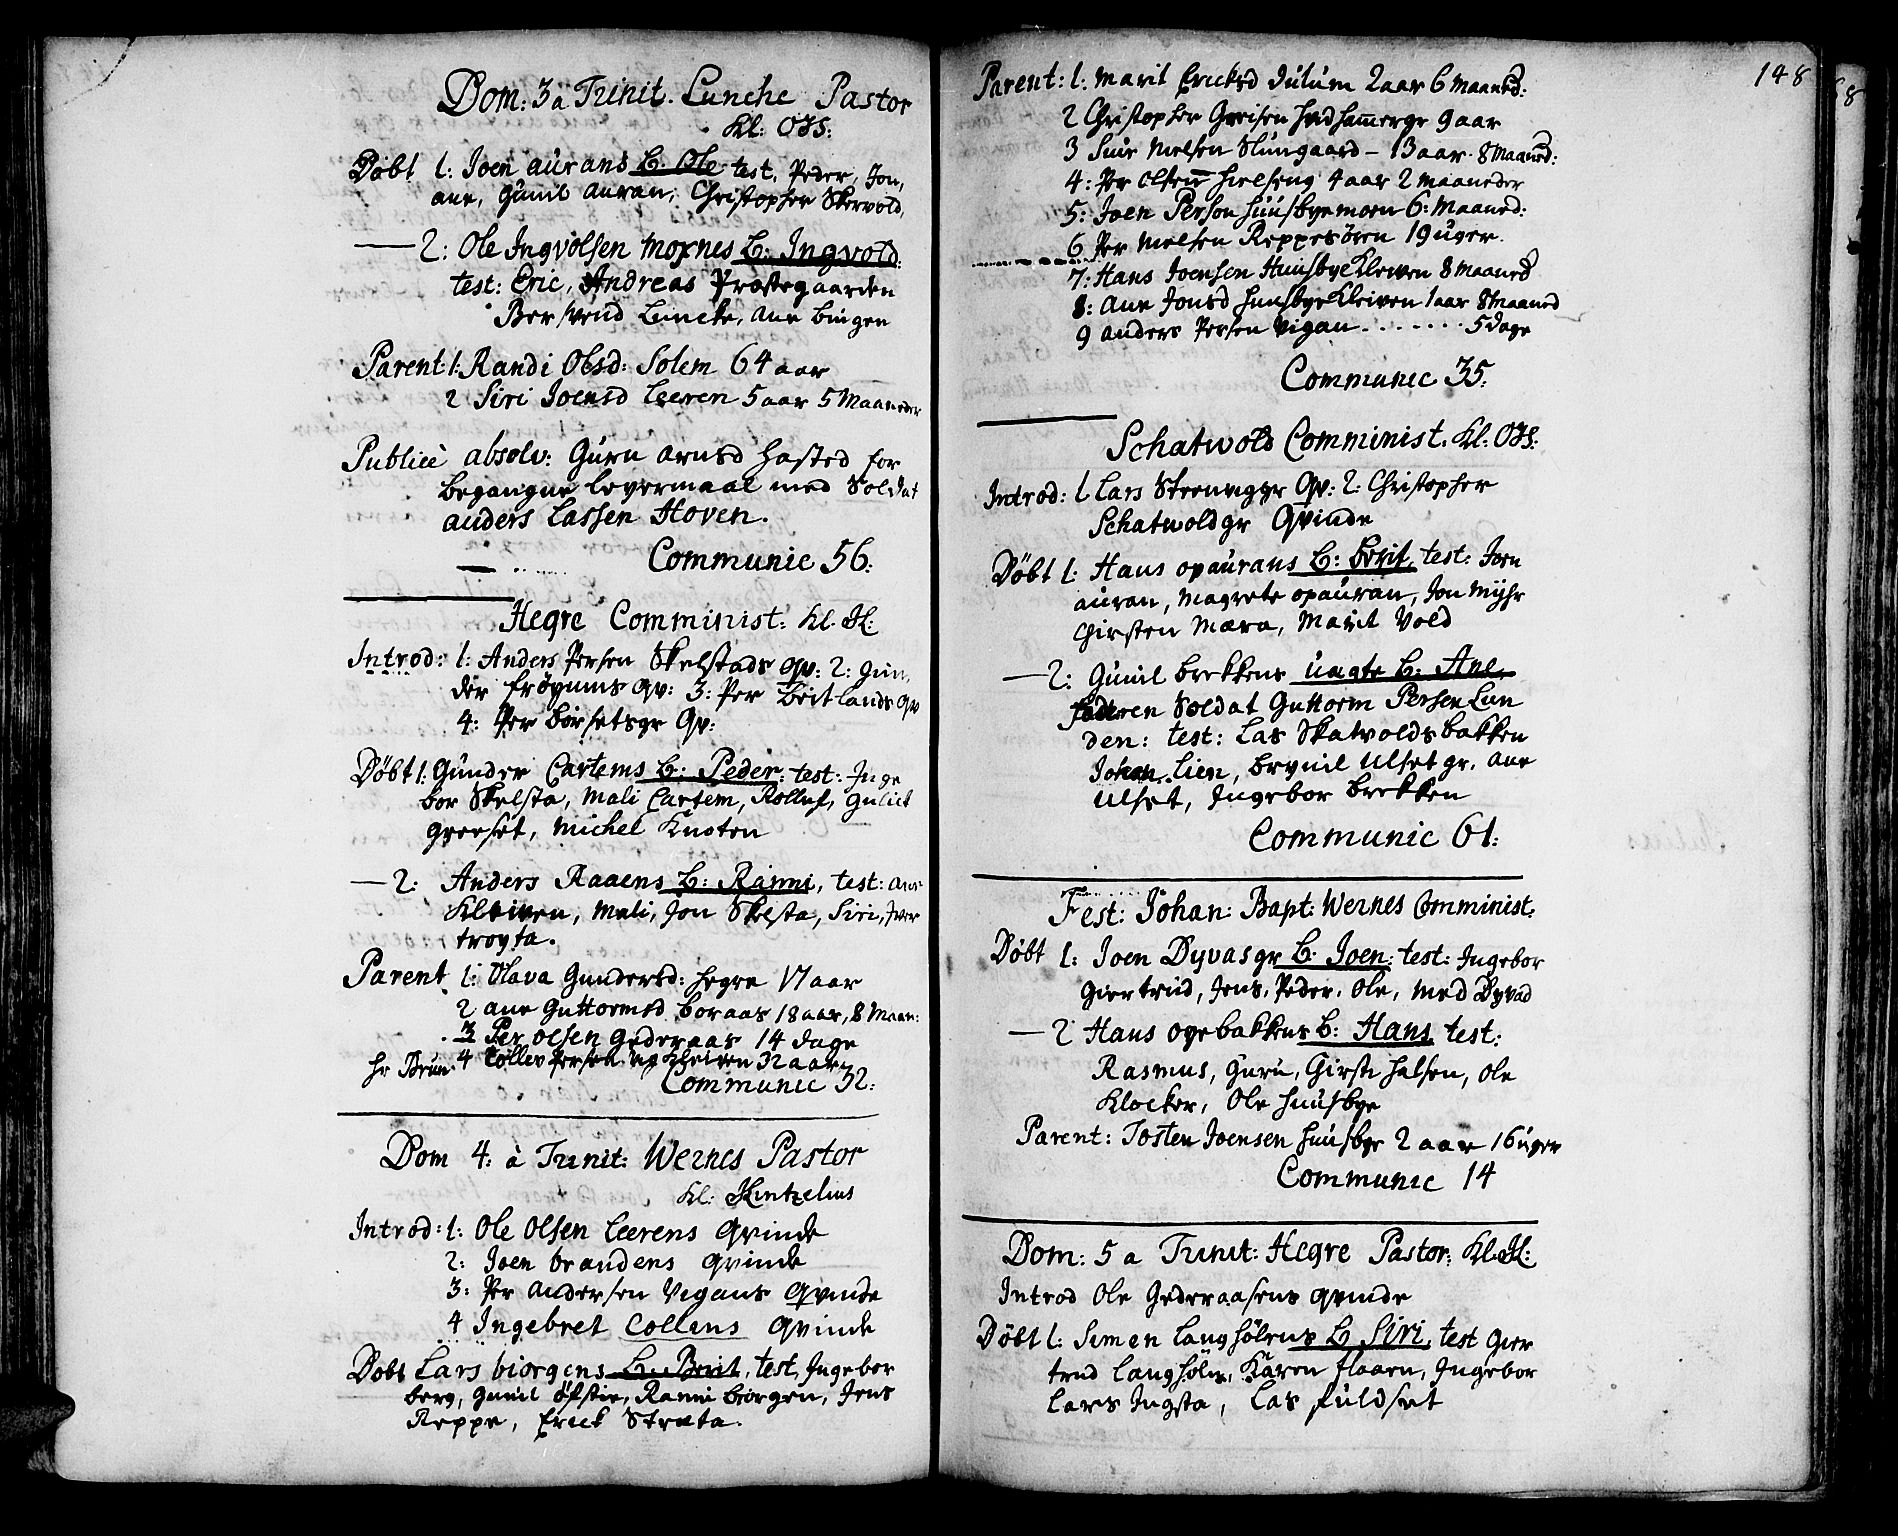 Dom: 3 a Trinit. Lunche Pastor
Kl: OJS:
Døbt 1: Joen aurans b. Ole test. Peder, Jon,
ane, Gunil auran, Christopher Skervold,
2: Ole Ingvolsen moxnes b: Ingvold:
test: Eric, Andreas Præstegaarden
Bersvend Luncke, ane bingen
Parent: 1: Randi Olsd: Solem 64 aar
2 Siri Joensd Leeren 5 aar 5 Maaneder
Publicè absolv: Guru arnsd hafted for
begangne leyermaal med Soldat
anders Lassen Hoven.
Communic 56:
Hegre Comminist: Kl. H:
Introd: 1: Anders Persen Skelstads qv: 2: Gun
der frøynms qv: 3: Per beitlands qv
4: Per børsetsgr Qv:
Døbt 1: Gunder Cartems b: Peder: test: Inge
bor Skelsta, mali Cartem, Rolluf, Guliet
greeset, michel Knoten
2: Anders Raaens b: Ranni, test: ane
Kleiven, mali, Jon Skelsta, Siri, Iver
troyta.
Parent 1: Olava Gundersd: hegre 17 aar
2 ane Guttormsd boraas 18 aar, 8 Maan:
3 Per olsen gederaas 14 dage
hr Brun: 4 Tollev Persen Kleiven 32 aar
Communic 52:
Dom 4: à Trinit: Wernes Pastor
Kl: Hintzelius
Introd: 1: Ole Olsen Leerens qvinde
2: Joen brandens qvinde
3: Per andersen Vigans qvinde
4 Ingebret Collens qvinde
Døbt Lars biorgens b: Berit, test, Ingebor
berg, Gunil øfstie, Ranni biorgen, Jens
Reppe, Erick Stræta.
148
Parent: 1: marit Ericksd Julum 2 aar 6 maaned:
2 Christopher Grisen hvidhammergr 9 aar
3 Siur Nielsen Slungaard - 13 aar 8 Maaned:
4: Per olsen hielseng 4 aar 2 maaneder
5: Joen Person huusbyemoen 6: Maaned:
6 Per Nielsen Reppesøren 19 uger.
7: Hans Joensen Huusbye Kleiven 8 maaned
8: ane Jonsd huusbye Kleiven 1 aar 8 Maaned
9 anders Persen Vigan . . . . . . . 5 dage
Communic 35:
Schatwold Comminist. Kl: OJS:
Introd: 1 Lars Steenveggr Qv: 2: Christopher
Schatwoldgr Qvinde
Døbt 1: Hans opaurans b: berit, test: Joen
auran, magrete opauran, Jon myhr
Girsten Mæra, Marit Vold
2: Gunil brekkens uægte b: Ane,
faderen Soldat Guttorm Persen Lun
den: test: Las Skatvoldsbakken
Johan Lien, brynil Ulset gr, ane
Ulset, Ingebor brekken
Communic 61:
Fest: Johan: Bapt: Wernes Comminist:
Døbt 1: Joen Dyvasgr b: Joen: test: Ingebor
giertrud, Jens, Peder, Ole, med Dyvad
2 Hans oyebakkens b: Hans test:
Rasmus, Guru, Girsti halsen, ole
Klocker, Ole huusbye
Parent: Tosten Joensen huusbye 2 aar 16 uger
Communic 14
Dom: 5 a Trinit: Hegre Pastor: Kl. H:
Introd Ole Gederaasens qvinde
Døbt 1: Simen Langhølens b Siri, test Gier
trud Langhøln, Karen flaarn, Ingebor
Lars Ingsta, Las fuldset